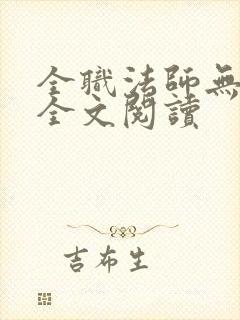 全職法師無
全文閱讀
吉布生